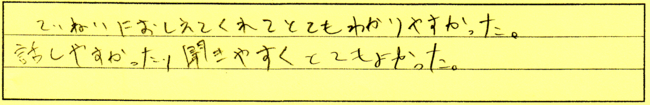 ていねいにおしえてくれてとてもわかりやすかった。
話しやすかったり聞きやすくとてもよかった。